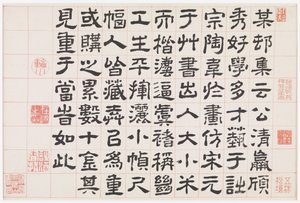 某邨集云公清羸頎
秀好學多才藝于詩
宗陶韋於畫仿宋元
于艸書出入大小米
而楷逼褚
工生平揮灑小幀尺
幅人皆藏弆已為重
或購之累數十金其
見重于當旹如此